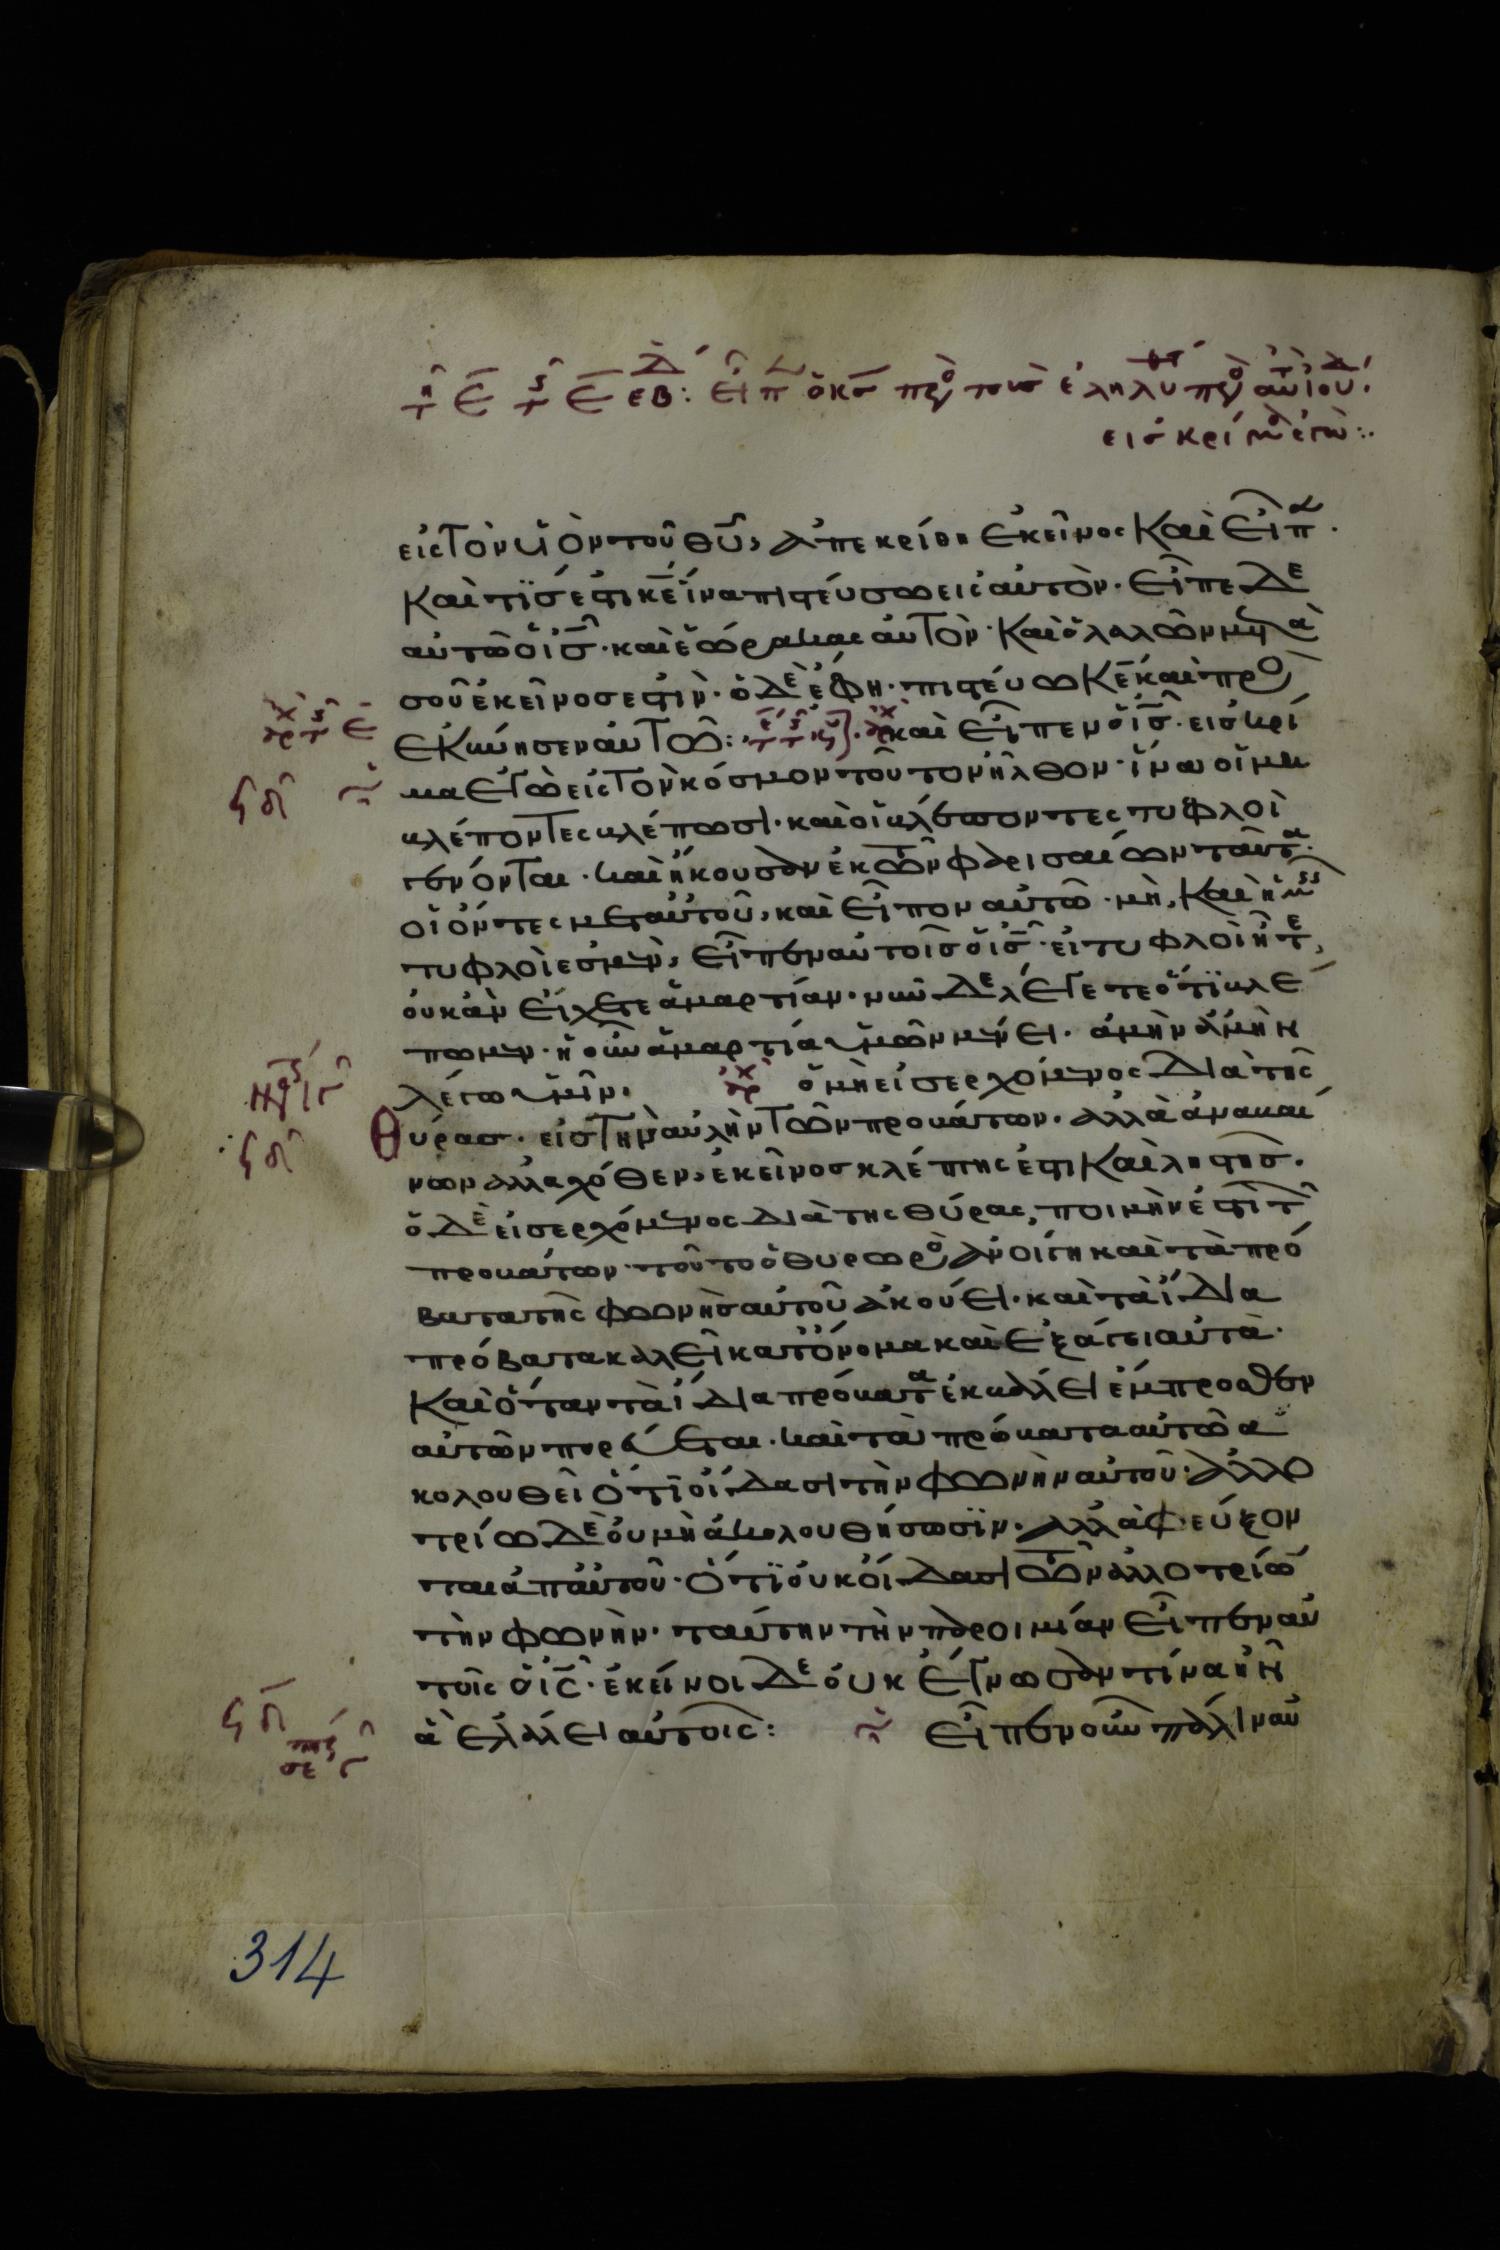 εἰς τὸν υἱὸν τοῦ θῦ, ἀπεκρίθη ἐκεῖνος καὶ εἶπ.
καὶ τίς ἐστι κε ἵνα πιστεύσω εἰς αὐτὸν. εἶπε δε
αὐτῶ ὁ ις. καὶ ἑώρακας αὐτὸν. καὶ ὁ λαλῶν μετὰ
σοῦ ἐκεῖνος ἐστὶν. ὁ δὲ ἔφη. πιστεύω κε καὶ προ
εκύνησεν αὐτῶ: καὶ εἶπεν ὁ ις. εἰς κρί
μα ἐγὼ εἰς τὸν κόσμον τοῦτον ἦλθον. ἵνα οἱ μὴ
βλέποντες βλέπωσι. καὶ οἱ βλέποντες τυφλοὶ
γένονται. καὶ ἤκουσαν ἐκ τῶν φαρισαίων ταῦτα.
οἱ ὄντες μετ αὐτοῦ, καὶ εἶπον αὐτῶ. μὴ, καὶ ἡμεῖς
τυφλοὶ ἐσμὲν, εἶπεν αὐτοῖς ὁ ις. εἰ τυφλοὶ ἦτε,
οὐκ ἂν εἴχετε ἁμαρτίαν. νῦν δε λέγετε ὅτι βλέ
πομεν. ἡ οὖν ἁμαρτία ὑμῶν μένει. ἀμὴν ἀμὴν
λέγω ὑμῖν. ὁ μὴ εἰσερχόμενος διὰ τῆς
θύρας. εἰς τὴν αὐλὴν τῶν προβάτων. ἀλλὰ ἀναβαί
νων ἀλλαχόθεν, ἐκεῖνος κλέπτης ἐστι καὶ ληστης.
ὁ δὲ εἰσερχόμενος διὰ της θύρας, ποιμὴν ἐστὶ τ
προβάτων. τοῦτο ὁ θυρωρο ἀνοίγη καὶ τὰ πρό
βατα τῆς φωνῆς αὐτοῦ ἀκούει. καὶ τὰ ἴδια
πρόβατα καλεῖ κατ ὄνομα καὶ ἐξάγει αὐτὰ.
καὶ ὅταν τὰ ἴδια πρόβατα ἐκβάλει ἔμπροσθεν
αὐτῶν πορεύεται. καὶ τὰ πρόβατα αὐτῶ α
κολουθεῖ ὅτι οἴδασι τὴν φωνὴν αὐτοῦ. ἀλλο
τρίω δὲ οὐ μὴ ἀκολουθήσωσιν. ἀλλὰ φεύξον
ται ἀπ αὐτοῦ. ὅτι οὐκ οἴδασι τῶν ἀλλοτρίω
τὴν φωνὴν. ταύτην τὴν παροιμίαν εἶπεν αὐ
τοῖς ὁ ις. ἐκείνοι δε οὐκ ἔγνωσαν τίνα ἦν
ἃ ἐλάλει αὐτοις: εἶπεν οὖν πάλιν αὐ
314